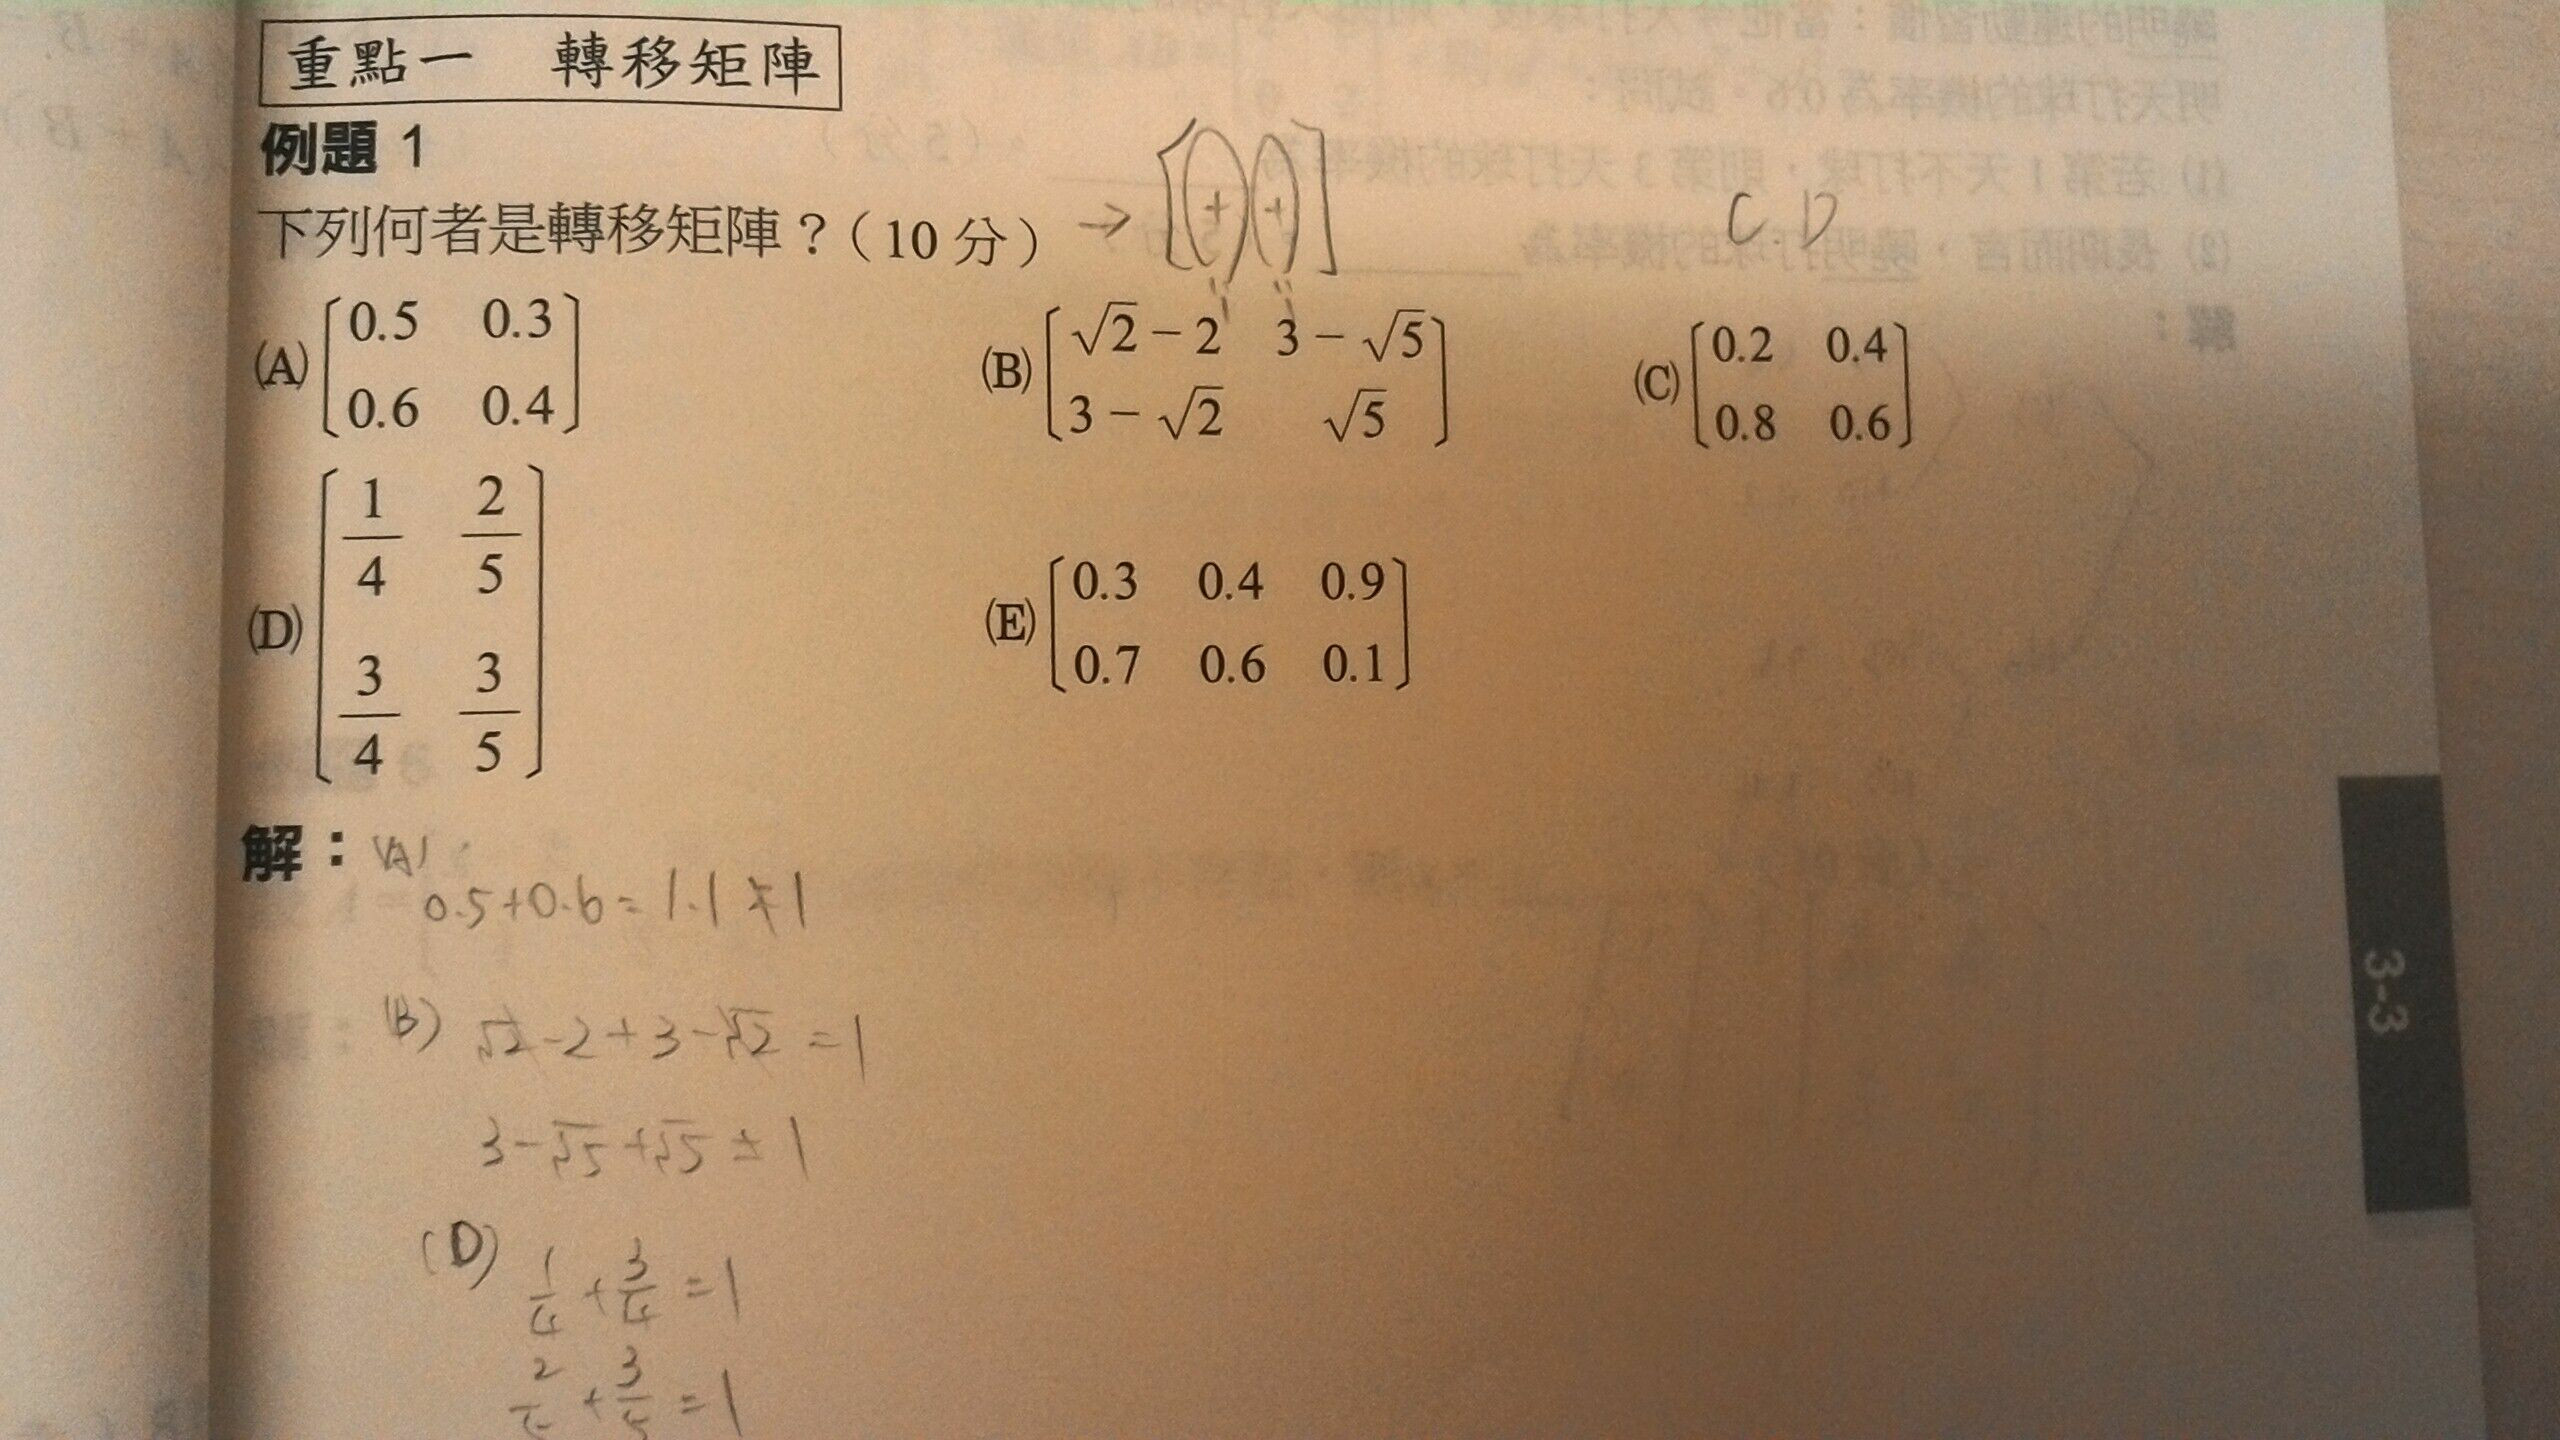 重點一　轉移矩陣
例題 1
下列何者是轉移矩陣？（10 分） → [+ +] C.D
(A) [0.5 0.3
0.6 0.4]
(B) [√2 − 2 3 − √5
3 − √2 √5]
(C) [0.2 0.4
0.8 0.6]
(D) [1/4 2/5
3/4 3/5]
(E) [0.3 0.4 0.9
0.7 0.6 0.1]
解： (A)
0.5+0.6=1.1≠1
(B) √2-2+3-√2=1
3-√5+√5≠1
(D) 1/4+3/4=1
2/5+3/5=1
3-3